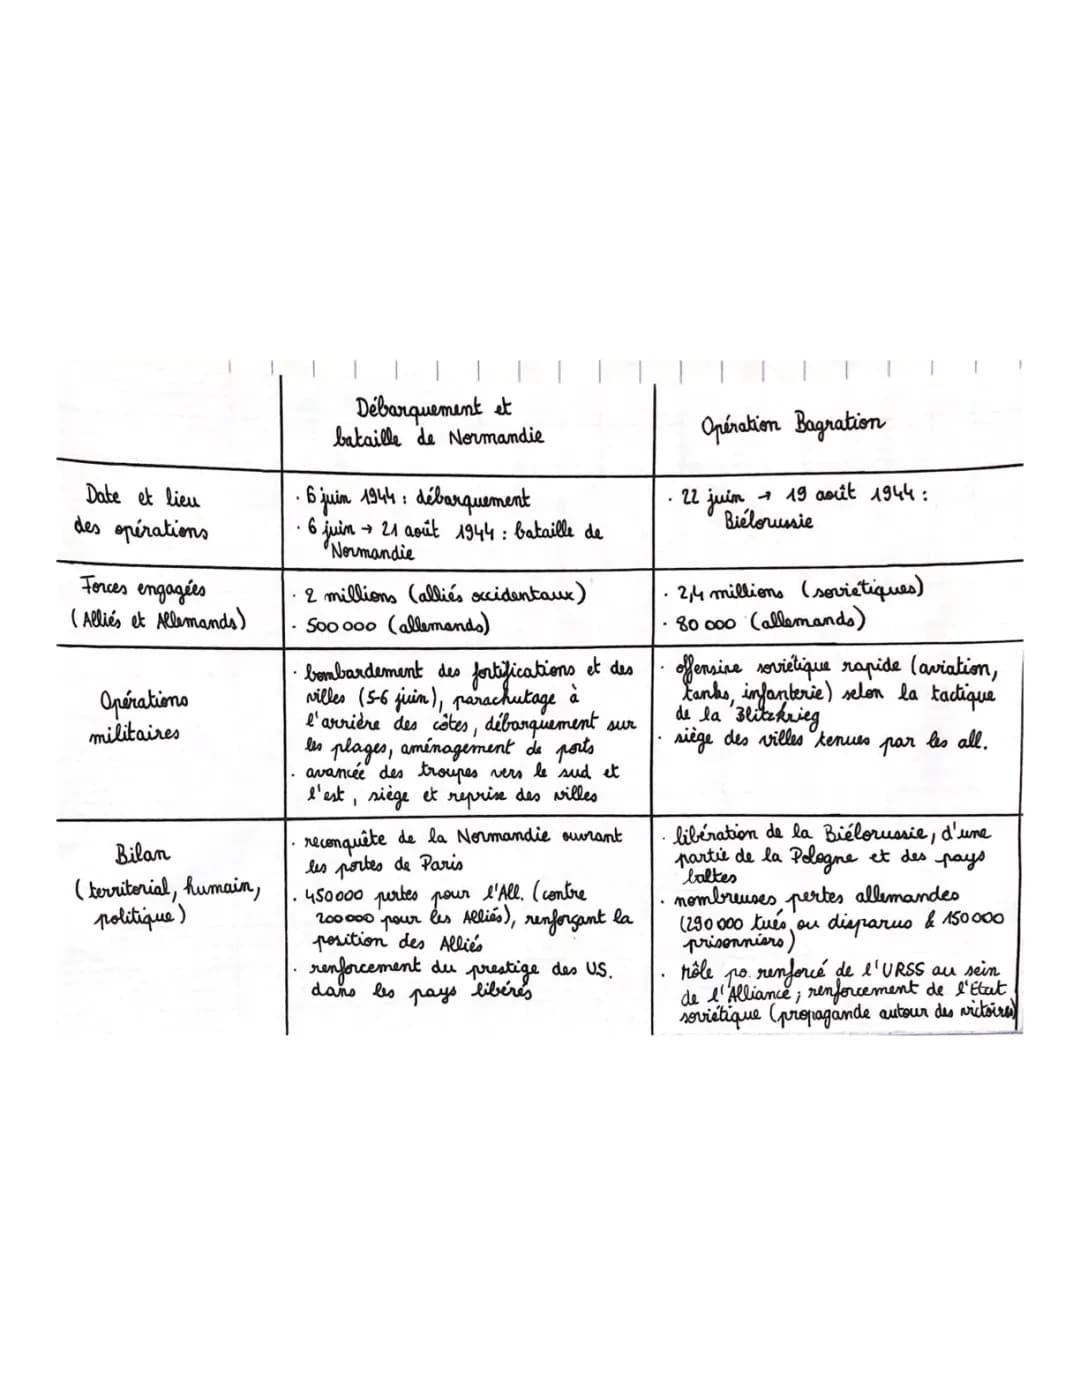 Débarquement et
bataille de Normandie
Opération Bagration
Date et lieu
des opérations
· 6 juin 1944 : débarquement
· 6 juin → 21 août 1944 : bataille de
Normandie
· 22 juin → 19 août 1944 :
Biélorussie
Forces engagées
(Alliés et Allemands)
· 2 millions (alliés occidentaux)
· 500 000 (allemands)
· 2,4 millions (soviétiques)
· 80 000 (allemands)
Opérations
militaires
· bombardement des fortifications et des
villes (5-6 juin), parachutage à
l'arrière des côtes, débarquement sur
les plages, aménagement de ports
· avancée des troupes vers le sud et
l'est, siège et reprise des villes
· offensive soviétique rapide (aviation,
tanks, infanterie) selon la tactique
de la Blitzkrieg
· siège des villes tenues par les all.
Bilan
(territorial, humain,
politique)
· reconquête de la Normandie ouvrant
les portes de Paris
· 450 000 pertes pour l'All. (contre
200 000 pour les Alliés), renforçant la
position des Alliés
· renforcement du prestige des US.
dans les pays libérés
· libération de la Biélorussie, d'une
partie de la Pologne et des pays
baltes
· nombreuses pertes allemandes
(290 000 tués ou disparus & 150 000
prisonniers)
· rôle po. renforcé de l'URSS au sein
de l'Alliance ; renforcement de l'État
soviétique (propagande autour des victoires)